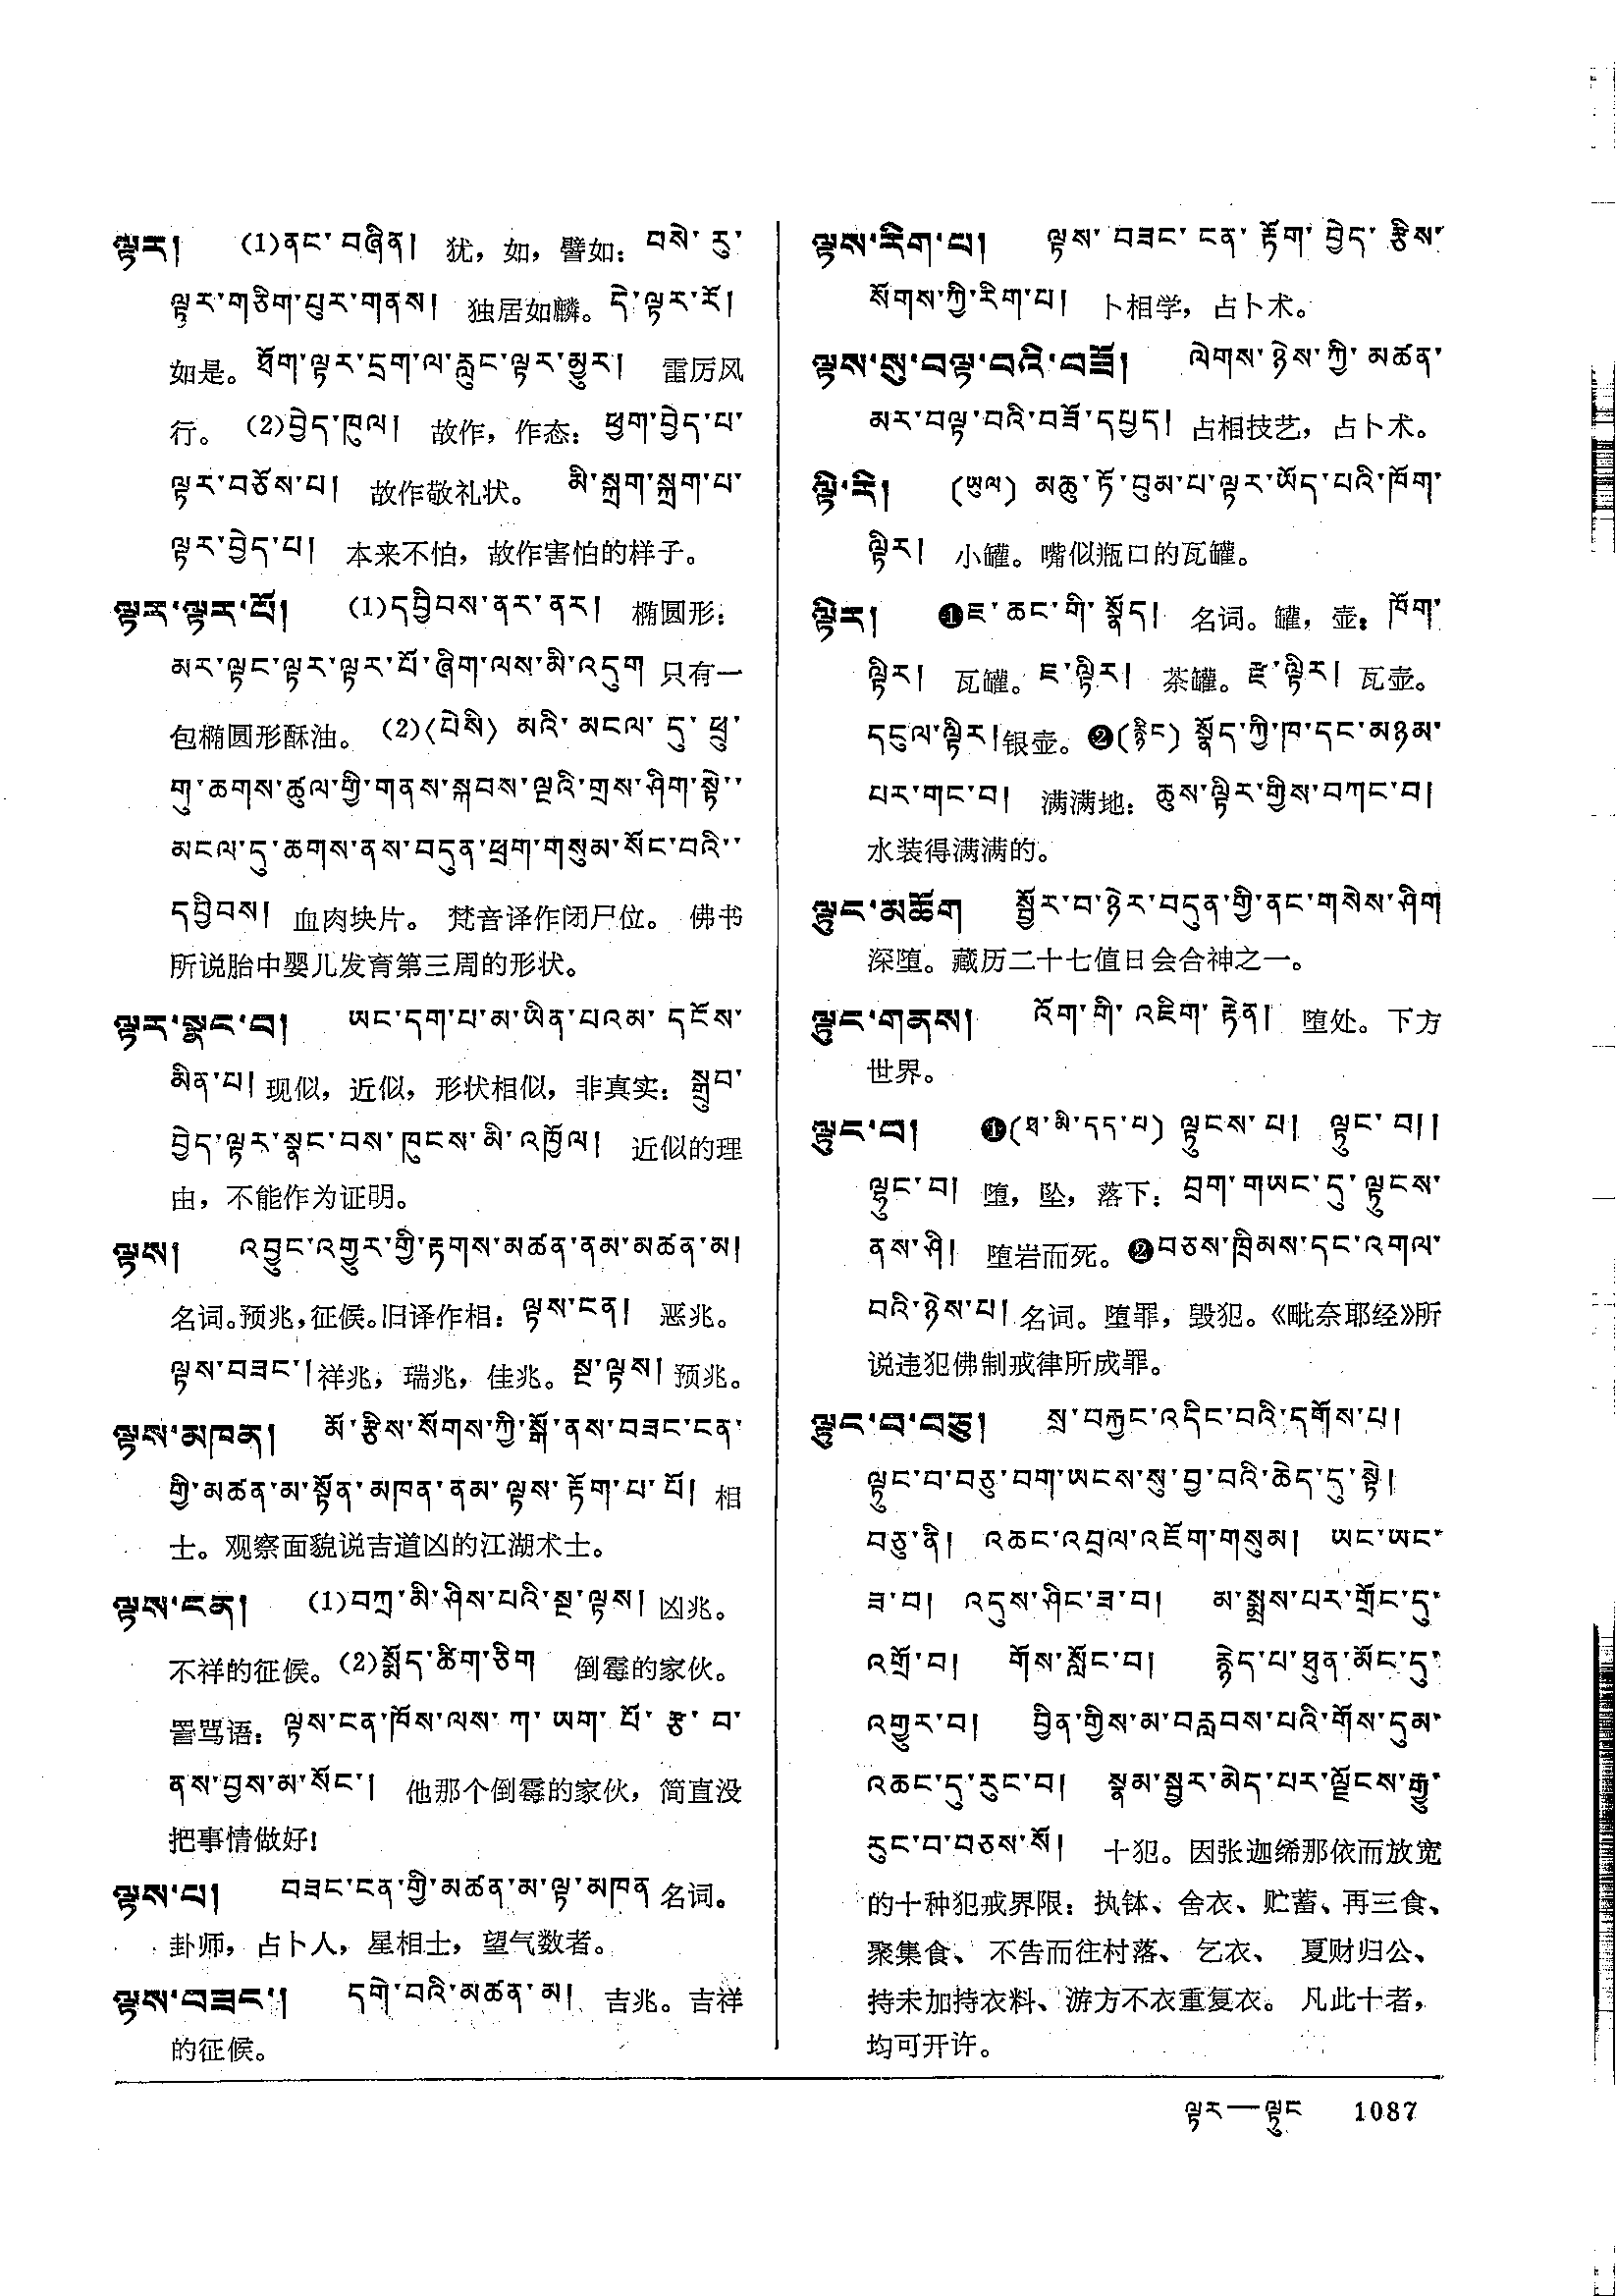 ལྟར། (1)ནང་བཞིན། 犹，如，譬如：བསེ་རུ་
ལྟར་གཅིག་པུར་གནས། 独居如麟。དེ་ལྟར་ངོ།
如是。ཐོག་ལྟར་དྲག་ལ་རླུང་ལྟར་མྱུར། 雷厉风
行。(2)བྱེད་ཁུལ། 故作，作态：ཕྱག་བྱེད་པ་
ལྟར་བཅོས་པ། 故作敬礼状。 མི་སྐྲག་སྐྲག་པ་
ལྟར་བྱེད་པ། 本来不怕，故作害怕的样子。
ལྟར་ལྟར་པོ། (1)དབྱིབས་ནར་ནར། 椭圆形：
མར་ལྟང་ལྟར་ལྟར་པོ་ཞིག་ལས་མི་འདུག 只有一
包椭圆形酥油。(2)〈པེསི〉 མའི་མངལ་དུ་ཕྲུ་
གུ་ཆགས་ཚུལ་གྱི་གནས་སྐབས་ལྔའི་གྲས་ཤིག་སྟེ་
མངལ་དུ་ཆགས་ནས་བདུན་ཕྲག་གསུམ་སོང་བའི་
དབྱིབས། 血肉块片。 梵音译作闭尸位。 佛书
所说胎中婴儿发育第三周的形状。
ལྟར་སྣང་བ། ཡང་དག་པ་མ་ཡིན་པའམ་དངོས་
མིན་པ། 现似，近似，形状相似，非真实：སྒྲུབ་
བྱེད་ལྟར་སྣང་བས་ཁུངས་མི་འཁྱོལ། 近似的理
由，不能作为证明。
ལྟས། འབྱུང་འགྱུར་གྱི་རྟགས་མཚན་ནམ་མཚན་མ།
名词。预兆，征候。旧译作相：ལྟས་ངན། 恶兆。
ལྟས་བཟང་། 祥兆，瑞兆，佳兆。སྔ་ལྟས། 预兆。
ལྟས་མཁན། མོ་རྩིས་སོགས་ཀྱི་སྒོ་ནས་བཟང་ངན་
གྱི་མཚན་མ་སྟོན་མཁན་ནམ་ལྟས་རྟོག་པ་པོ། 相
士。观察面貌说吉道凶的江湖术士。
ལྟས་ངན། (1)བཀྲ་མི་ཤིས་པའི་སྔ་ལྟས། 凶兆。
不祥的征候。(2)སྨོད་ཚིག་ཅིག 倒霉的家伙。
詈骂语：ལྟས་ངན་ཁོས་ལས་ཀ་ཡག་པོ་རྩ་བ་
ནས་བྱས་མ་སོང་། 他那个倒霉的家伙，简直没
把事情做好!
ལྟས་པ། བཟང་ངན་གྱི་མཚན་མ་ལྟ་མཁན 名词。
卦师，占卜人，星相士，望气数者。
ལྟས་བཟང་། དགེ་བའི་མཚན་མ། 吉兆。吉祥
的征候。
ལྟས་རིག་པ། ལྟས་བཟང་ངན་རྟོག་བྱེད་རྩིས་
སོགས་ཀྱི་རིག་པ། 卜相学，占卜术。
ལྟས་སུ་བལྟ་བའི་བཟོ། ལེགས་ཉེས་ཀྱི་མཚན་
མར་བལྟ་བའི་བཟོ་དཔྱད། 占相技艺，占卜术。
ལྟི་རི། (ཡུལ) མཆུ་ཏོ་བུམ་པ་ལྟར་ཡོད་པའི་ཁོག་
ལྟིར། 小罐。嘴似瓶口的瓦罐。
ལྟིར། ❶ཇ་ཆང་གི་སྣོད། 名词。罐，壶：ཁོག་
ལྟིར། 瓦罐。ཇ་ལྟིར། 茶罐。རྫ་ལྟིར། 瓦壶。
དངུལ་ལྟིར། 银壶。❷(རྙིང) སྣོད་ཀྱི་ཁ་དང་མཉམ་
པར་གང་བ། 满满地：ཆུས་ལྟིར་གྱིས་བཀང་བ།
水装得满满的。
ལྟུང་མཆོག སྦྱོར་བ་ཉེར་བདུན་གྱི་ནང་གསེས་ཤིག
深堕。藏历二十七值日会合神之一。
ལྟུང་གནས། འོག་གི་འཇིག་རྟེན། 堕处。下方
世界。
ལྟུང་བ། ❶(ཐ་མི་དད་པ) ལྟུངས་པ། ལྟུང་བ།།
ལྷུང་བ། 堕，坠，落下：བྲག་གཡང་དུ་ལྟུངས་
ནས་ཤི། 堕岩而死。❷བཅས་ཁྲིམས་དང་འགལ་
བའི་ཉེས་པ། 名词。堕罪，毁犯。《毗奈耶经》所
说违犯佛制戒律所成罪。
ལྟུང་བ་བཅུ། སྲ་བརྐྱང་འདིང་བའི་དགོས་པ།
ལྟུང་བ་བཅུ་བག་ཡངས་སུ་བྱ་བའི་ཆེད་དུ་སྟེ།
བཅུ་ནི། འཆང་འབྲལ་འཇོག་གསུམ། ཡང་ཡང་
ཟ་བ། འདུས་ཤིང་ཟ་བ། མ་སྨྲས་པར་གྲོང་དུ་
འགྲོ་བ། གོས་སློང་བ། རྙེད་པ་ཐུན་མོང་དུ་
འགྱུར་བ། བྱིན་གྱིས་མ་བརླབས་པའི་གོས་དུམ་
འཆང་དུ་རུང་བ། སྣམ་སྦྱར་མེད་པར་ལྗོངས་རྒྱུ་
རུང་བ་བཅས་སོ། 十犯。因张迦𫄨那依而放宽
的十种犯戒界限：执钵、舍衣、贮蓄、再三食、
聚集食、不告而往村落、乞衣、 夏财归公、
持未加持衣料、游方不衣重复衣。 凡此十者，
均可开许。
ལྟར—ལྟུང 1087